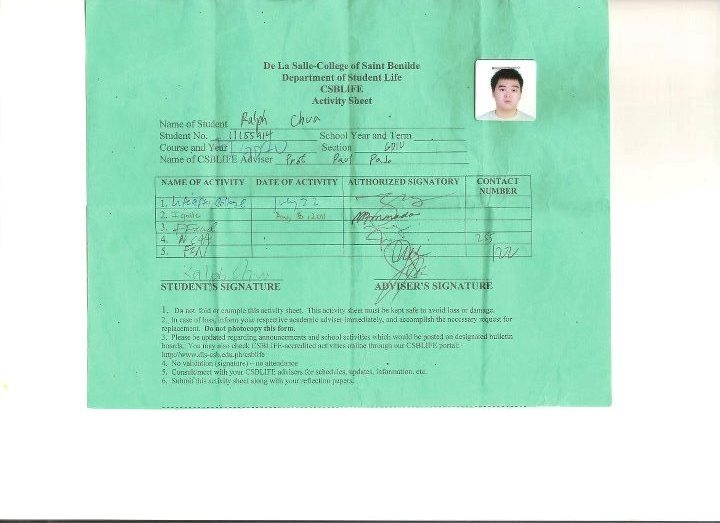 De La Salle-College of Saint Benilde
Department of Student Life
CSBLIFE
Activity Sheet
Name of Student Ralph Chua
Student No. 11155414 School Year and Term
Course and Year Section
Name of CSBLIFE Adviser Prof. Paul
NAME OF ACTIVITY DATE OF ACTIVITY AUTHORIZED SIGNATORY CONTACT NUMBER
1. Life after College July 22
2. Ignite Aug 8, 2011
3.
4. NCAA
5.
Ralph Chua
STUDENT'S SIGNATURE ADVISER'S SIGNATURE
1. Do not fold or crumple this activity sheet. This activity sheet must be kept safe to avoid loss or damage.
2. In case of loss, inform your respective academic adviser immediately, and accomplish the necessary request for
replacement. Do not photocopy this form.
3. Please be updated regarding announcements and school activities which would be posted on designated bulletin
boards. You may also check CSBLIFE-accredited activities online through our CSBLIFE portal:
http://www.dls-csb.edu.ph/csblife
4. No validation (signature) – no attendance
5. Consult/meet with your CSBLIFE advisers for schedules, updates, information, etc.
6. Submit this activity sheet along with your reflection papers.